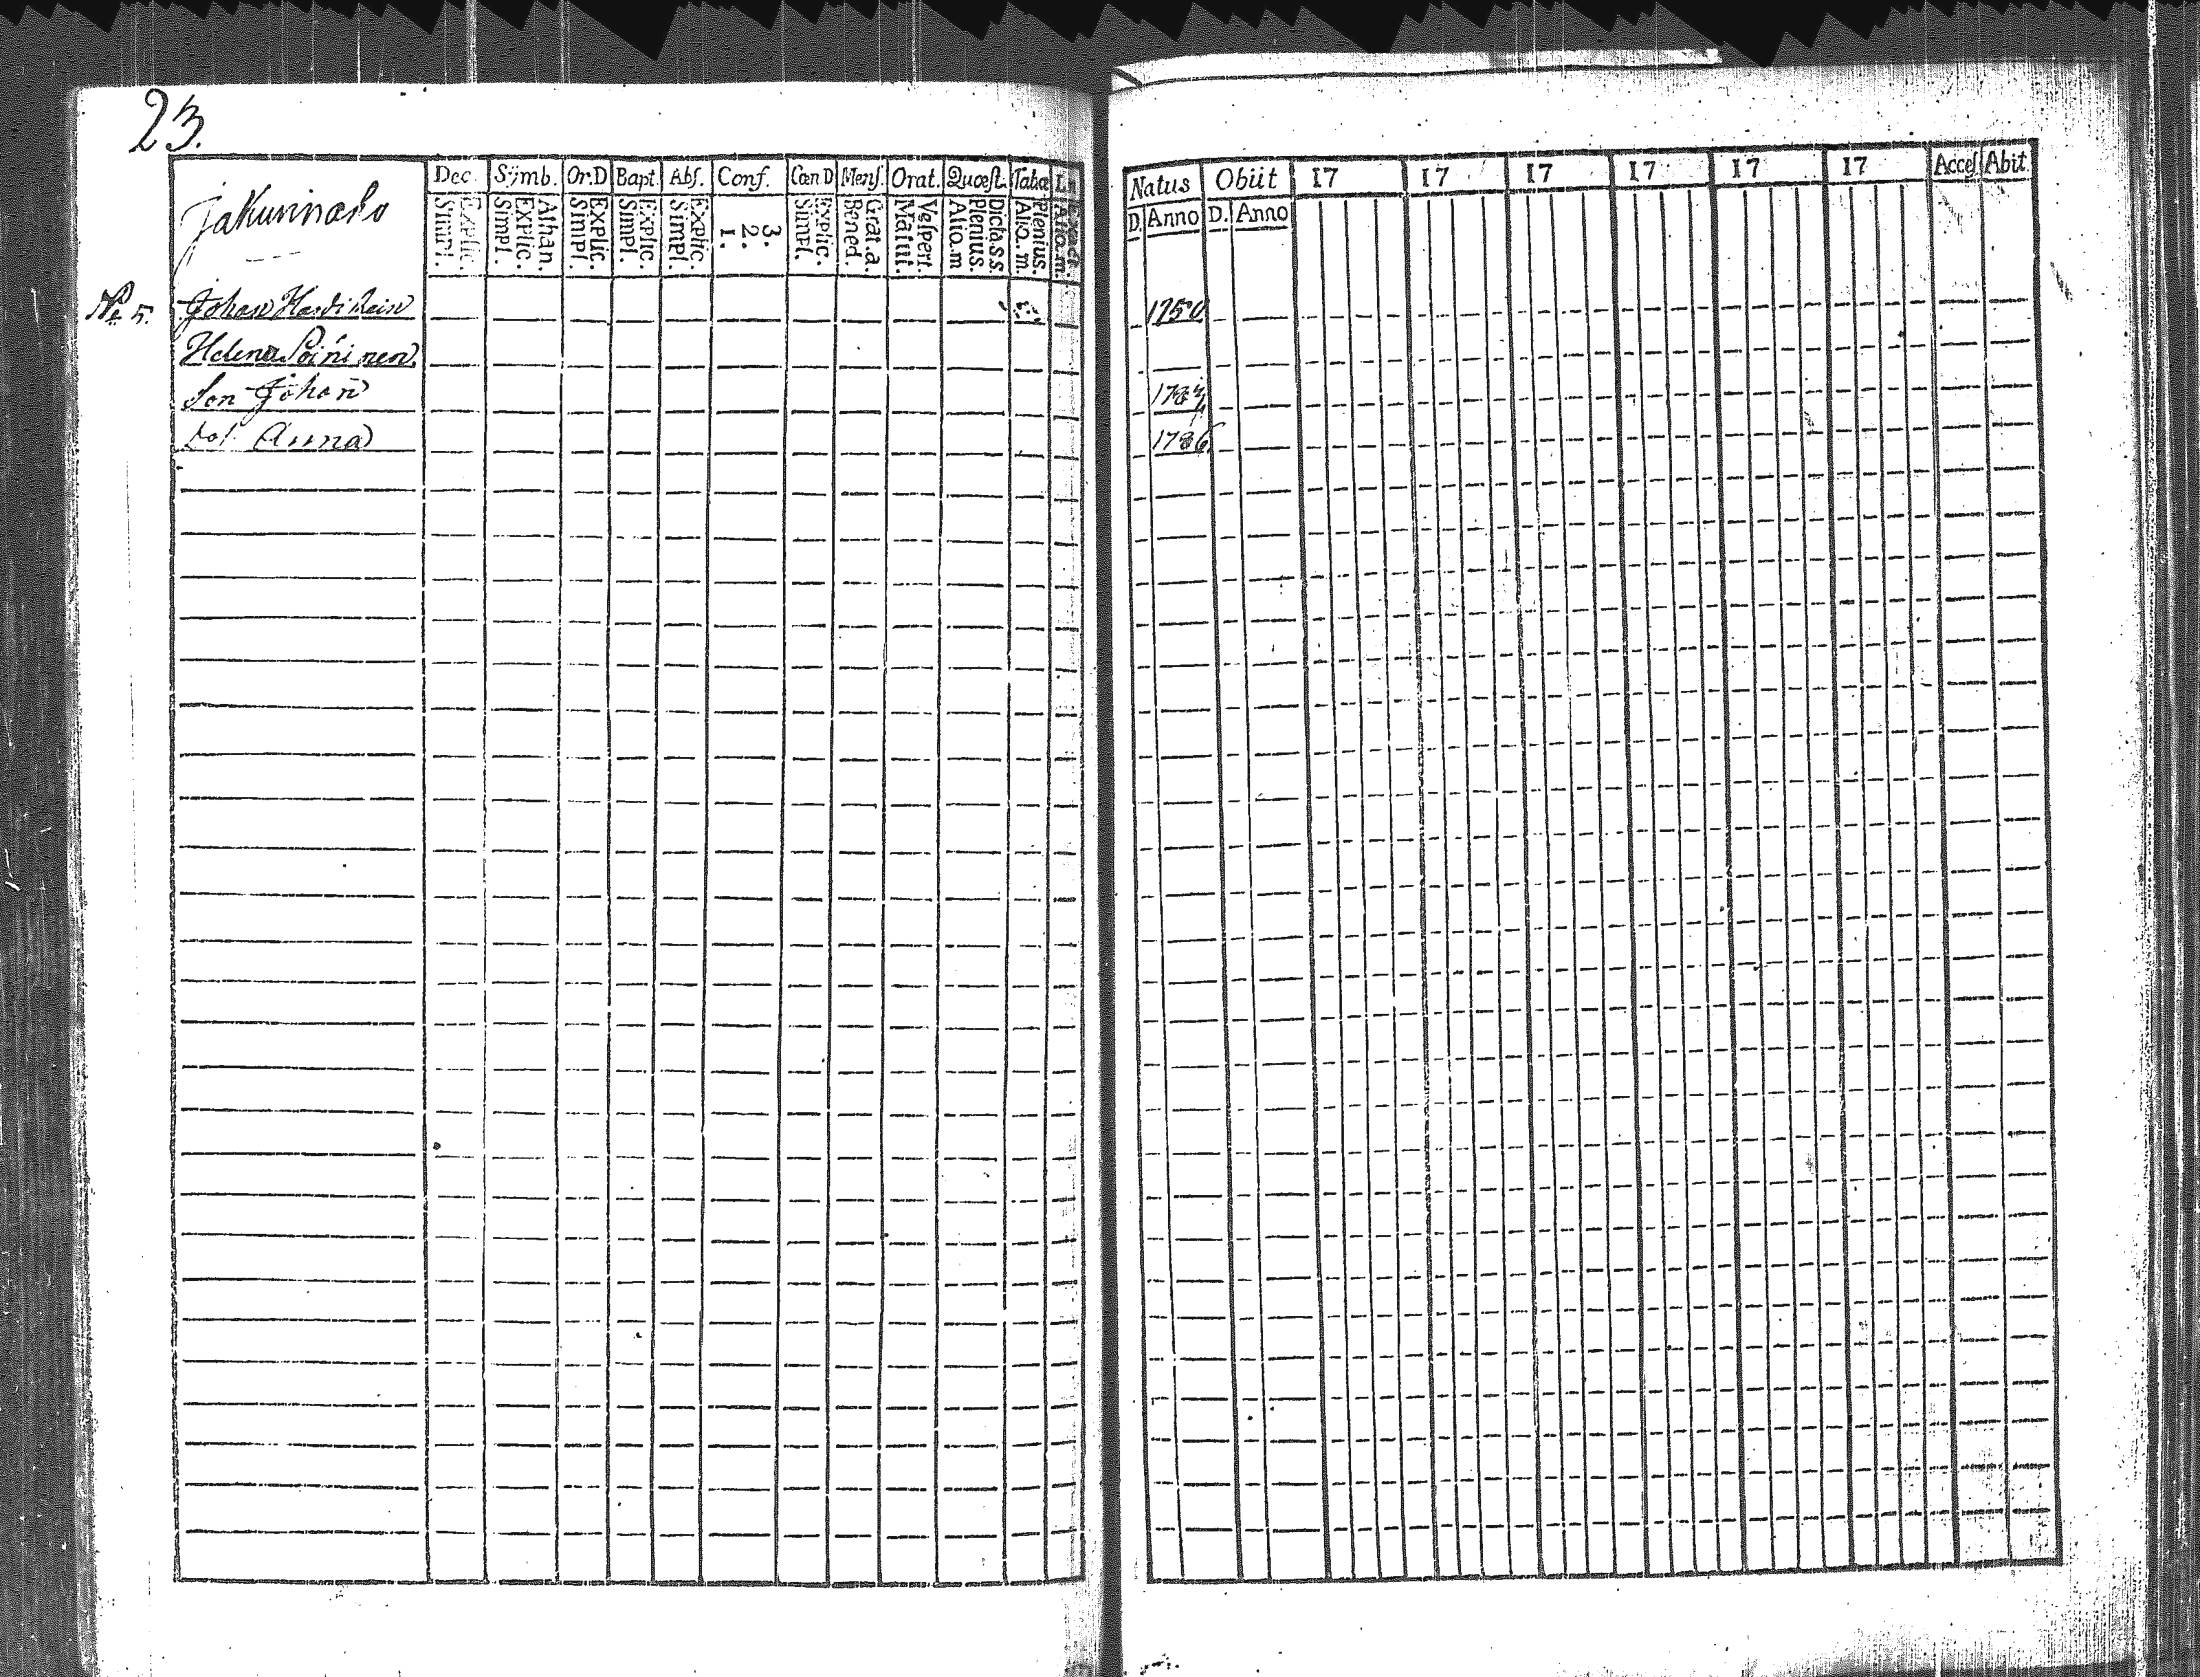 23.
Dec. Sÿmb. Or.D Bapt. Abſ. Conf. Cœn D Menſ. Orat. Quœſt. Tabœ
Explic. Simpl. Athan. Explic. Simpl. Explic. Simpl. Explic. Simpl. Explic. Simpl. 3. 2. 1. Explic. Simpl. Grat.a. Bened. Veſpert. Matut. Dicta.s.s. Plenius. Aliq.m Plenius. Aliq.m.
No 5. Johan
Helena Poininen
Son Johan
Dot. Anna
Natus Obiit 17 17 17 17 17 17 Acceſ Abit
D. Anno D. Anno
1750
1784
1786